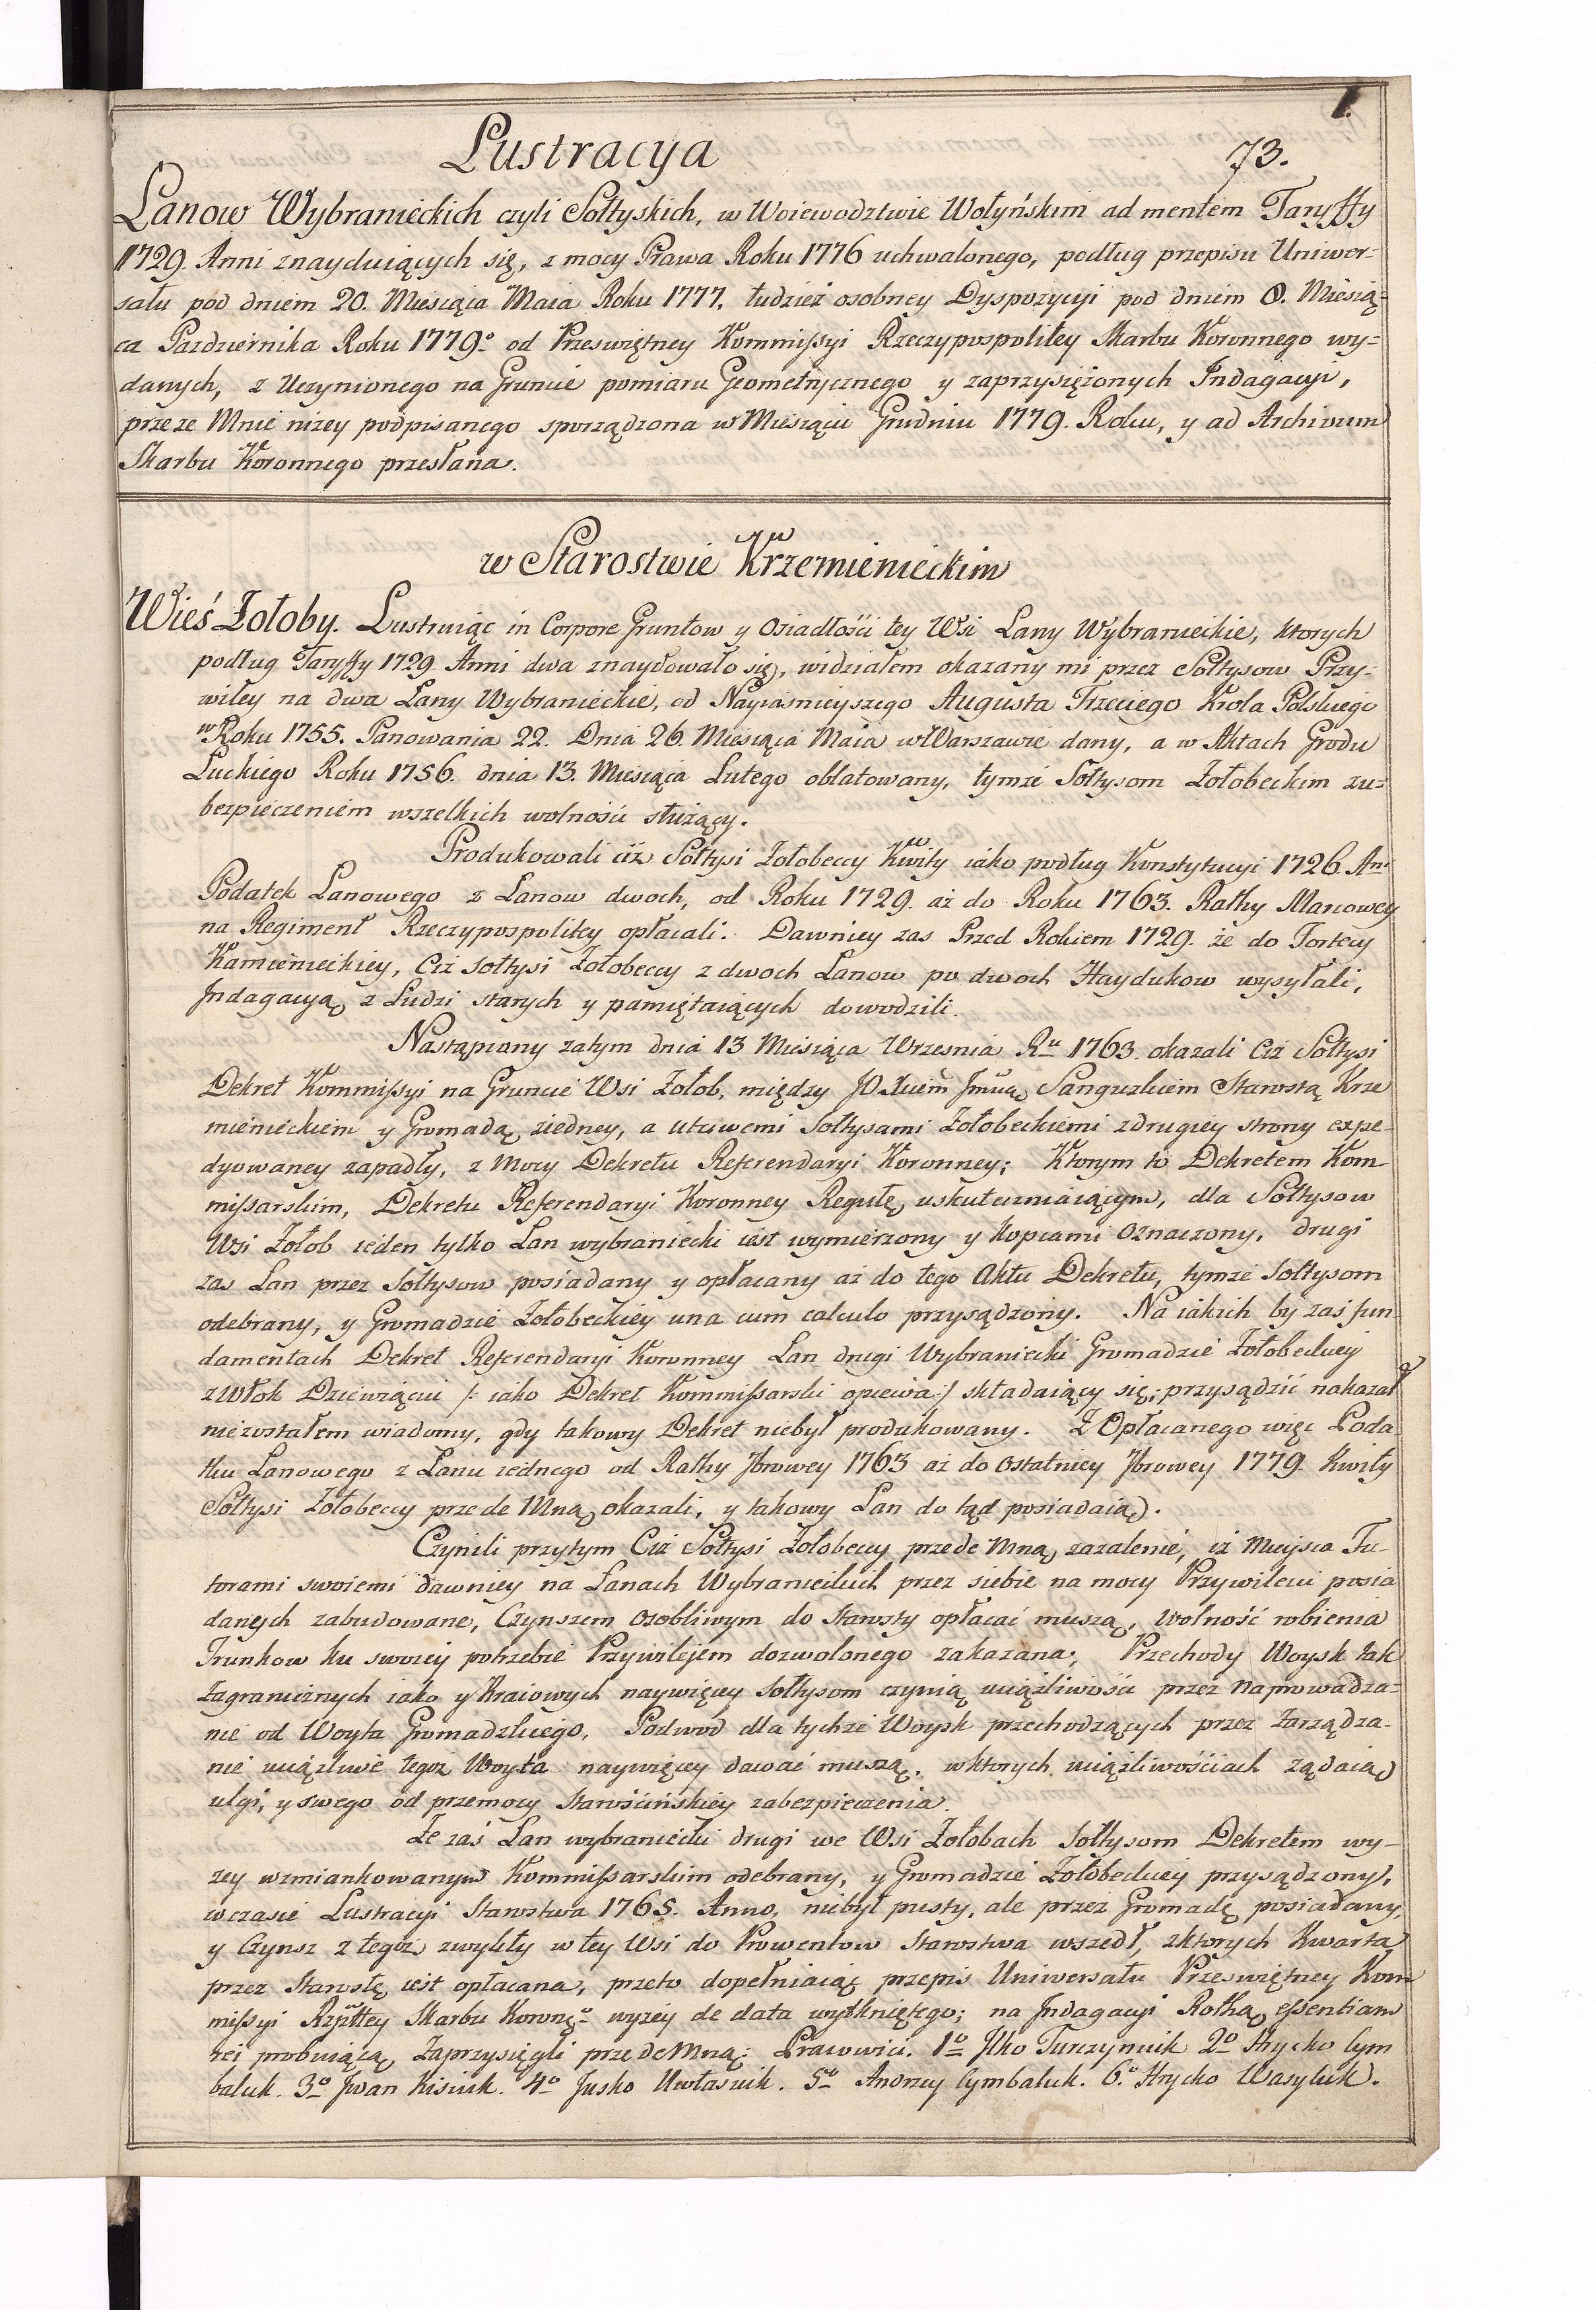 1.
Lustracya
73.
Łanow Wybranieckich czyli Sołtyskich, w Woiewodztwie Wołyńskim ad mentem Taryffy
1729. Anni znayduiących się, z mocy Prawa Roku 1776 uchwalonego, podług przepisu Uniwer-
sału pod dniem 20. Miesiąca Maia Roku 1777. tudzież osobney Dyspozycyi pod dniem 8. Miesią=
ca Pazdziernika Roku 1779º od Przeświętney Kommissyi Rzeczypospolitey Skarbu Koronnego wy=
danych, z Uczynionego na Gruncie pomiaru Geometrycznego y zaprzysiężonych Indagacyi,
przeze Mnie niżey podpisanego sporządzona w Miesiącu Grudniu 1779. Roku, y ad Archivum
Skarbu Koronnego przesłana.
w Starostwie Krzemienieckim
Wieś Żołoby. Lustruiąc in Corpore Gruntow y Osiadłości tey Wsi Łany Wybranieckie, ktorych
podług Taryffy 1729 Anni dwa znaydowało się, widziałem okazany mi przez Sołtysow Przy-
wiley na dwa Łany Wybranieckie, od Nayiaśnieyszego Augusta Trzeciego Krola Polskiego
w Roku 1755. Panowania 22. Dnia 26. Miesiąca Maia w Warszawie dany, a w Aktach Grodu
Luckiego Roku 1756. dnia 13. Miesiąca Lutego oblatowany, tymże Sołtysom Żołobeckim zu=
bezpieczeniem wszelkich wolności służący.
Produkowali ciż Sołtysi Żołobeccy Kwity iako podług Konstytucyi 1726. Ani
Podatek Łanowego z Łanow dwoch, od Roku 1729. aż do Roku 1763. Rathy Marcowey
na Regiment Rzeczypospolitey opłacali. Dawniey zas Przed Rokiem 1729. że do Fortecy
Kamienieckiey, Ciż sołtysi Żołobeccy z dwoch Łanow po dwoch Haydukow wysyłali,
Indagacyą z Ludzi starych y pamiętaiących dowodzili.
Nastąpiany zatym dnia 13 Miesiąca Wrzesnia Ru 1763. okazali Ciż Sołtysi
Dekret Kommissyi na Gruncie Wsi Żołob, między JO Xciem Jmcią Sanguszkiem Starostą Krze
mienieckiem y Gromadą ziedney, a utciwemi Sołtysami Żołobeckiemi zdrugiey strony expe-
dyowaney zapadły, z Mocy Dekretu Referendaryi Koronney; Ktorym to Dekretem Kom
missarskim, Dekretu Referendaryi Koronney Regułę uskuteczniaiącym, dla Sołtysow
Wsi Żołob ieden tylko Łan wybraniecki iest wymierzony y kopcami oznaczony, drugi
zas Łan przez Sołtysow posiadany y opłacany aż do tego Aktu Dekretu, tymże Sołtysom
odebrany, y Gromadzie Żołobeckiey una cum calculo przysądzony. Na iakich by zaś fun
damentach Dekret Referendaryi Koronney Łan drugi Wybraniecki Gromadzie Żołobeckiey
z Włok Dziewiąciu /: iako Dekret Kommissarski opiewa :/ składaiący się; przysądzić nakazał
niezostałem wiadomy, gdy takowy Dekret niebył produkowany. Z Opłacanego więc Poda
tku Łanowego z Łanu iednego od Rathy 7browey 1763 aż do ostatniey 7browey 1779 Kwity
Sołtysi Żołobeccy przede Mną okazali, y takowy Łan do tąd posiadaią.
Czynili przytym Ciż Sołtysi Żołobeccy przede Mną zażalenie, iż Mieysca Fu-
torami swoiemi dawniey na Łanach Wybranieckich przez siebie na mocy Przywileiu posia
danych zabudowane, Czynszem osobliwym do Starosty opłacać muszą, wolność robienia
Trunkow ku swoiey potrzebie Przywilejem dozwolonego zakazana; Przechody Woysk tak
Zagranicznych iako y Kraiowych naywięcey Sołtysom czynią uciążliwości przez Naprowadza=
nie od Woyta Gromadzkiego, Podwod dla tychże Woysk przechodzących przez Zarządza-
nie uciążliwe tegoż Woyta naywięcey dawać muszą. w ktorych uciążliwościach żądaią
ulgi, y swego od przemocy Starościńskiey zabezpieczenia.
Że zaś Łan wybraniecki drugi we Wsi Żołobach Sołtysom Dekretem wy-
żey wzmiankowanym Kommissarskim odebrany, y Gromadzie Żołobeckiey przysądzony,
w czasie Lustracyi Starostwa 1765. Anno, niebył pusty, ale przez Gromadę posiadany,
y Czynsz z tegoż zwykły w tey Wsi do Prowentow Starostwa wszedł, zktorych Kwarta
przez Starostę iest opłacana, przeto dopełniaiąc przepis Uniwersału Przeświętney Kom
missyi Rzpltey Skarbu Koronego wyżey de data wytkniętego; na Indagacyi Rothą essentiam
rei probuiącą Zaprzysięgli przede Mną: Prawowici. 1º Ilko Turczyniuk 2º Hrycko Cym
baluk. 3º Jwan Kisiuk. 4º Jusko Uwłasiuk. 5º Andrzey Cymbaluk. 6º Hrycko Wasyluk.